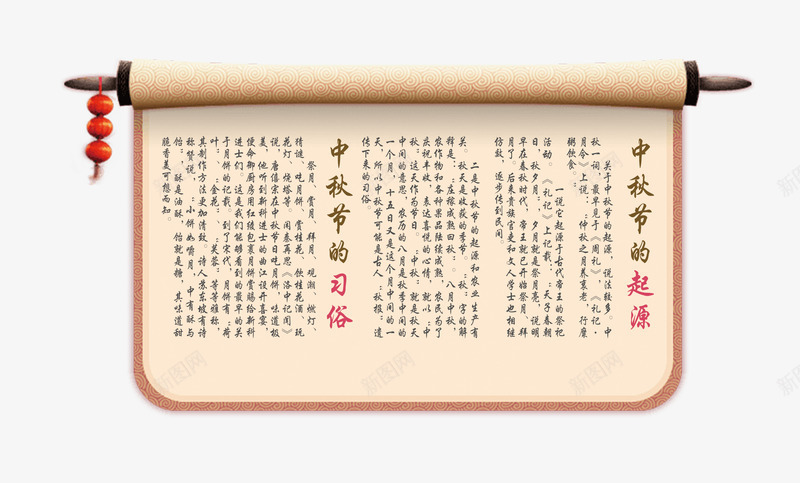 中秋节的起源
关于中秋节的起源，说法较多。中
秋一词，最早见于《周礼》，《礼记·
月令》上说：“仲秋之月养衰老，行糜
粥饮食。”
一说它起源于古代帝王的祭祀
活动。《礼记》上记载：“天子春朝
日，秋夕月”，夕月就是祭月亮，说明
早在春秋时代，帝王就已开始祭月、拜
月了。后来贵族官吏和文人学士也相继
仿效，逐步传到民间。
二是中秋节的起源和农业生产有
关。秋天是收获的季节。“秋”字的解
释是：“庄稼成熟曰秋”。八月中秋，
农作物和各种果品陆续成熟，农民为了
庆祝丰收，表达喜悦的心情，就以“中
秋”这天作为节日。“中秋”就是秋天
中间的意思，农历的八月是秋季中间的
一个月，十五日又是这个月中间的一
天，所以中秋节可能是古人“秋报”遗
传下来的习俗。
中秋节的习俗
祭月、赏月、拜月、观潮、燃灯、
猜谜、吃月饼、赏桂花、饮桂花酒、玩
花灯、烧塔等。闲卷再思《洛中记闻》
说，唐僖宗在中秋节日吃月饼，味道极
美，他听到新科进士的曲江设开喜宴，
便命御厨房用红绫包裹月饼赏赐给新科
进士们。这是我们能够看到的最早的关
于月饼的记载。到了宋代，月饼有“荷
叶”、“金花”、“芙蓉”等等雅称，
其制作方法更加清致。诗人苏东坡有诗
称赞说：“小饼如嚼月，中有酥与
饴”，酥是油酥，饴就是糖，其味道甜
脆香美可想而知。
新图网
新图网
新图网